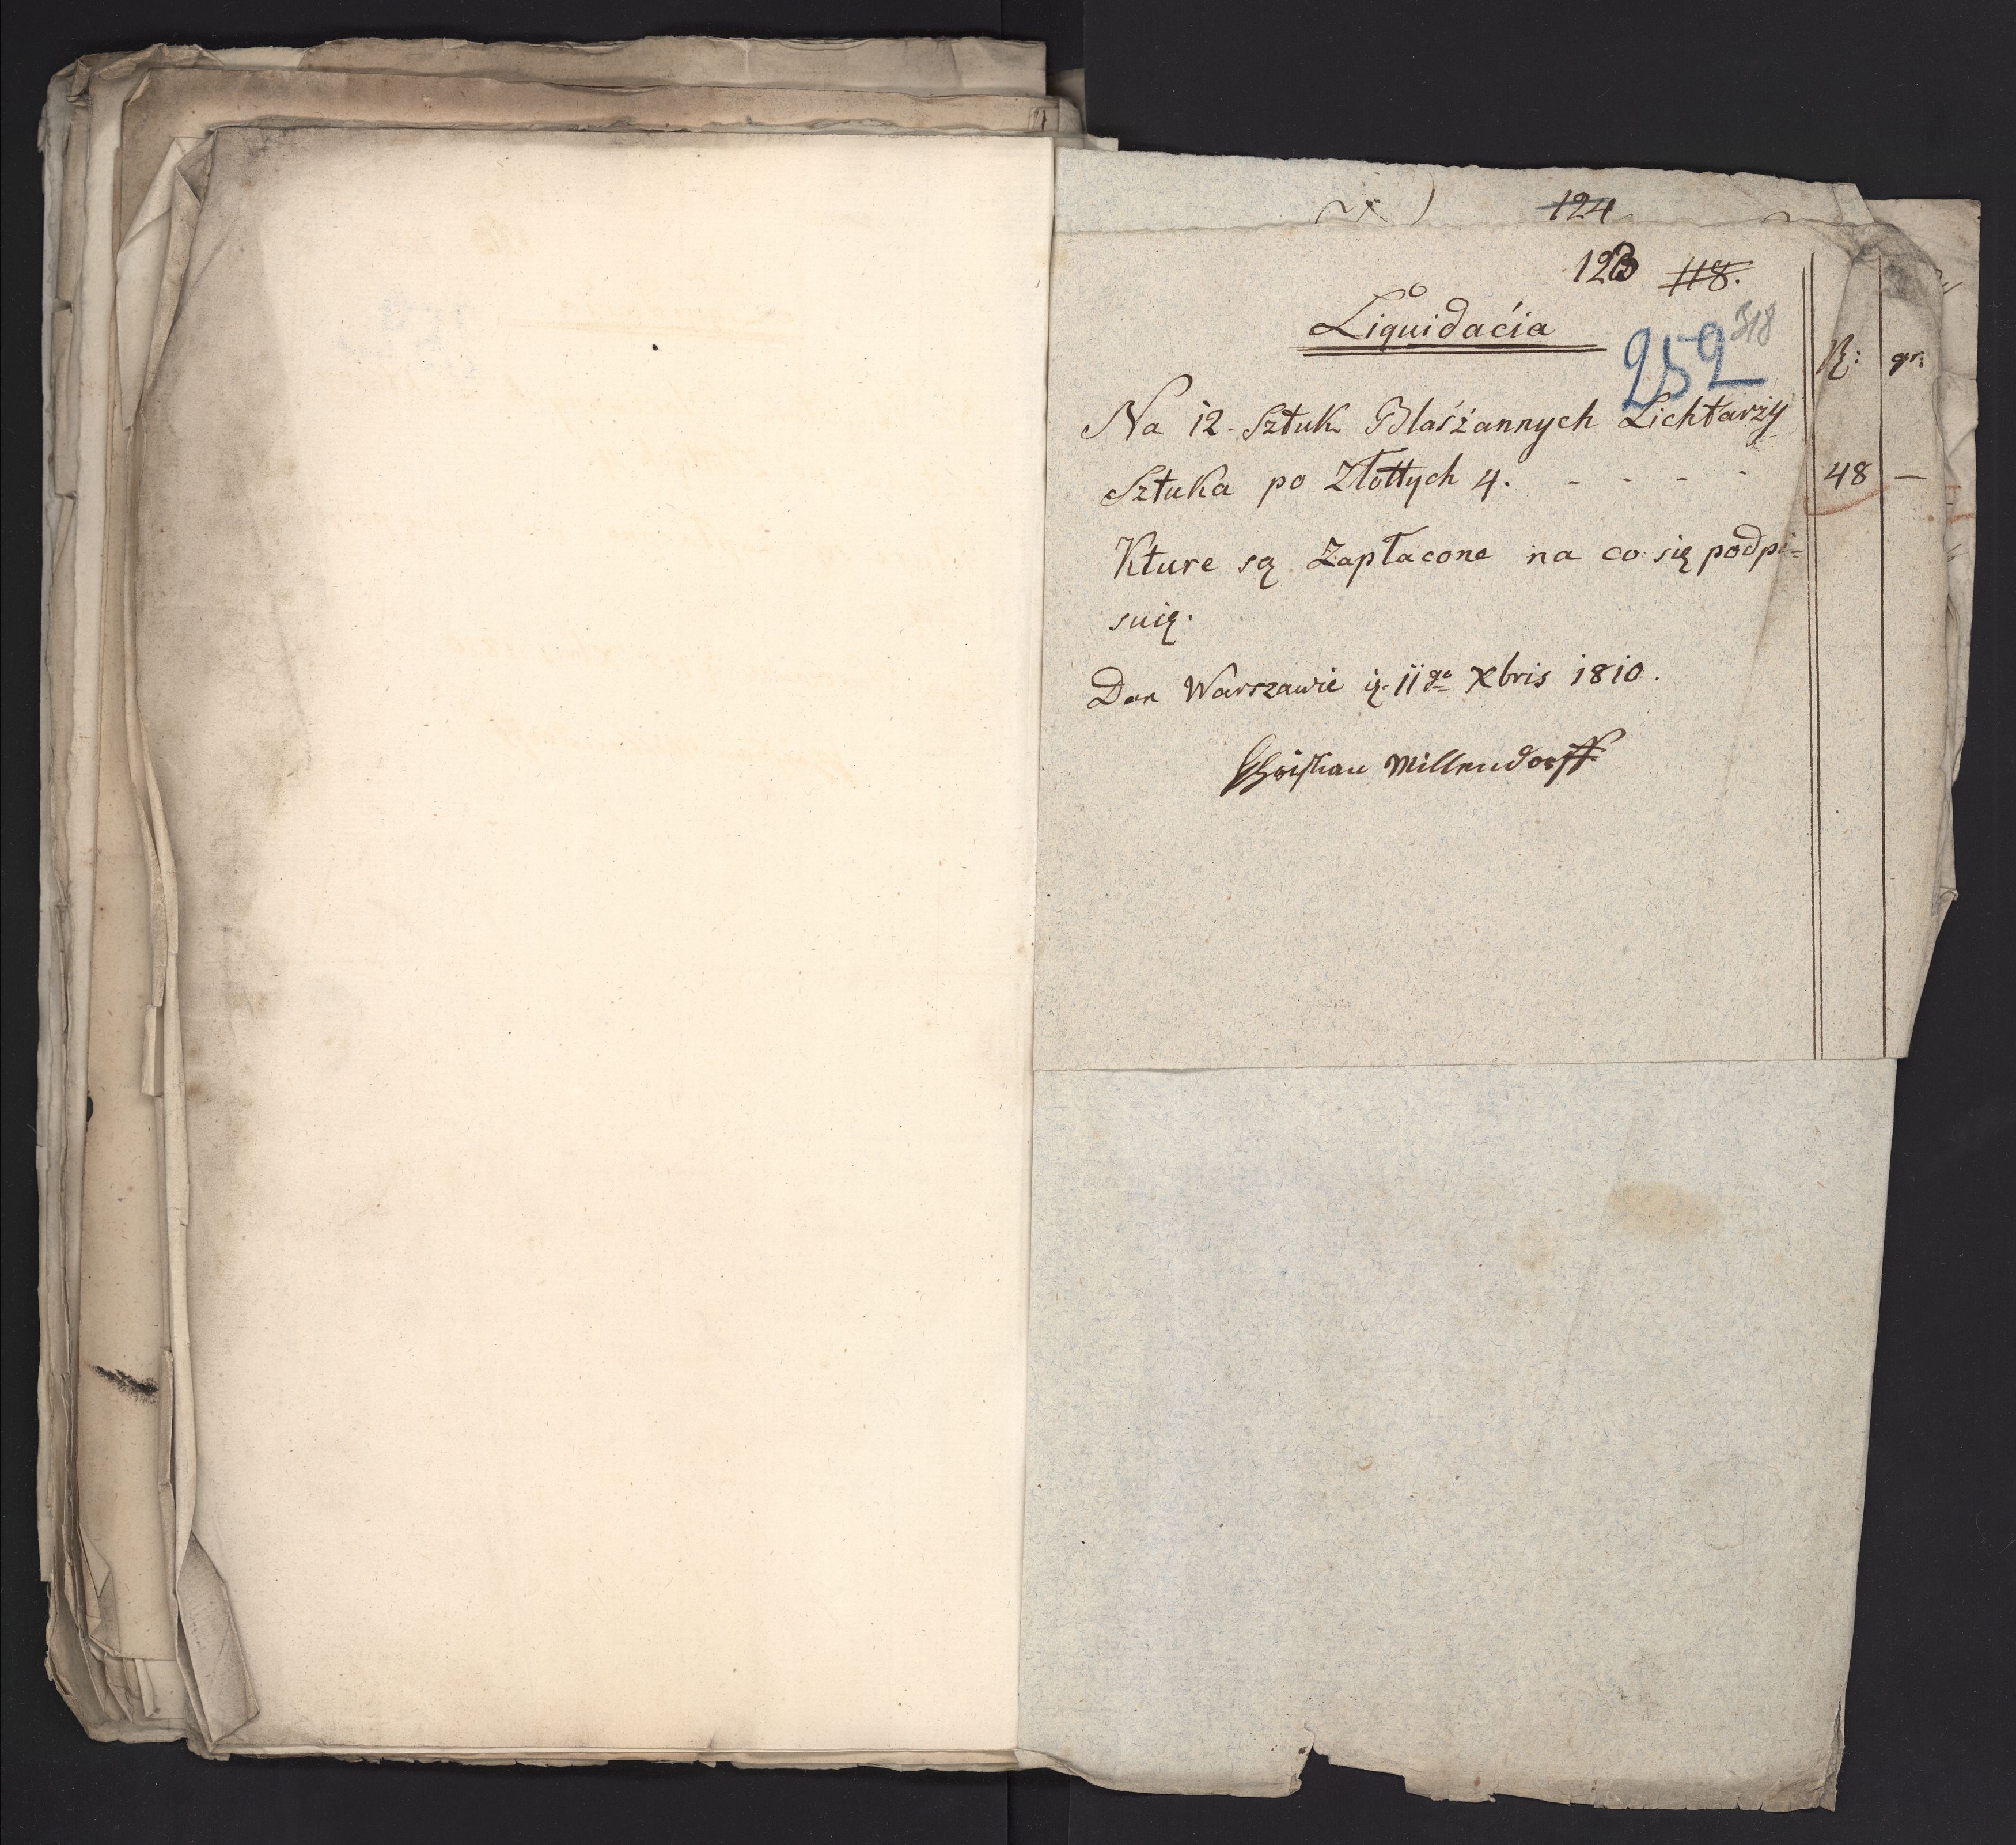 124
123 118.
Liquidaćia
252 318
Rx: gr:
Na 12. Sztuk Blaśżannych Lichtarży
Sztuka po Złottych 4. - - - - 48 —
Kture są Zapłacone na co się podpi=
suię.
Dan Warszawie 11go Xbris 1810.
Christian Millendorff